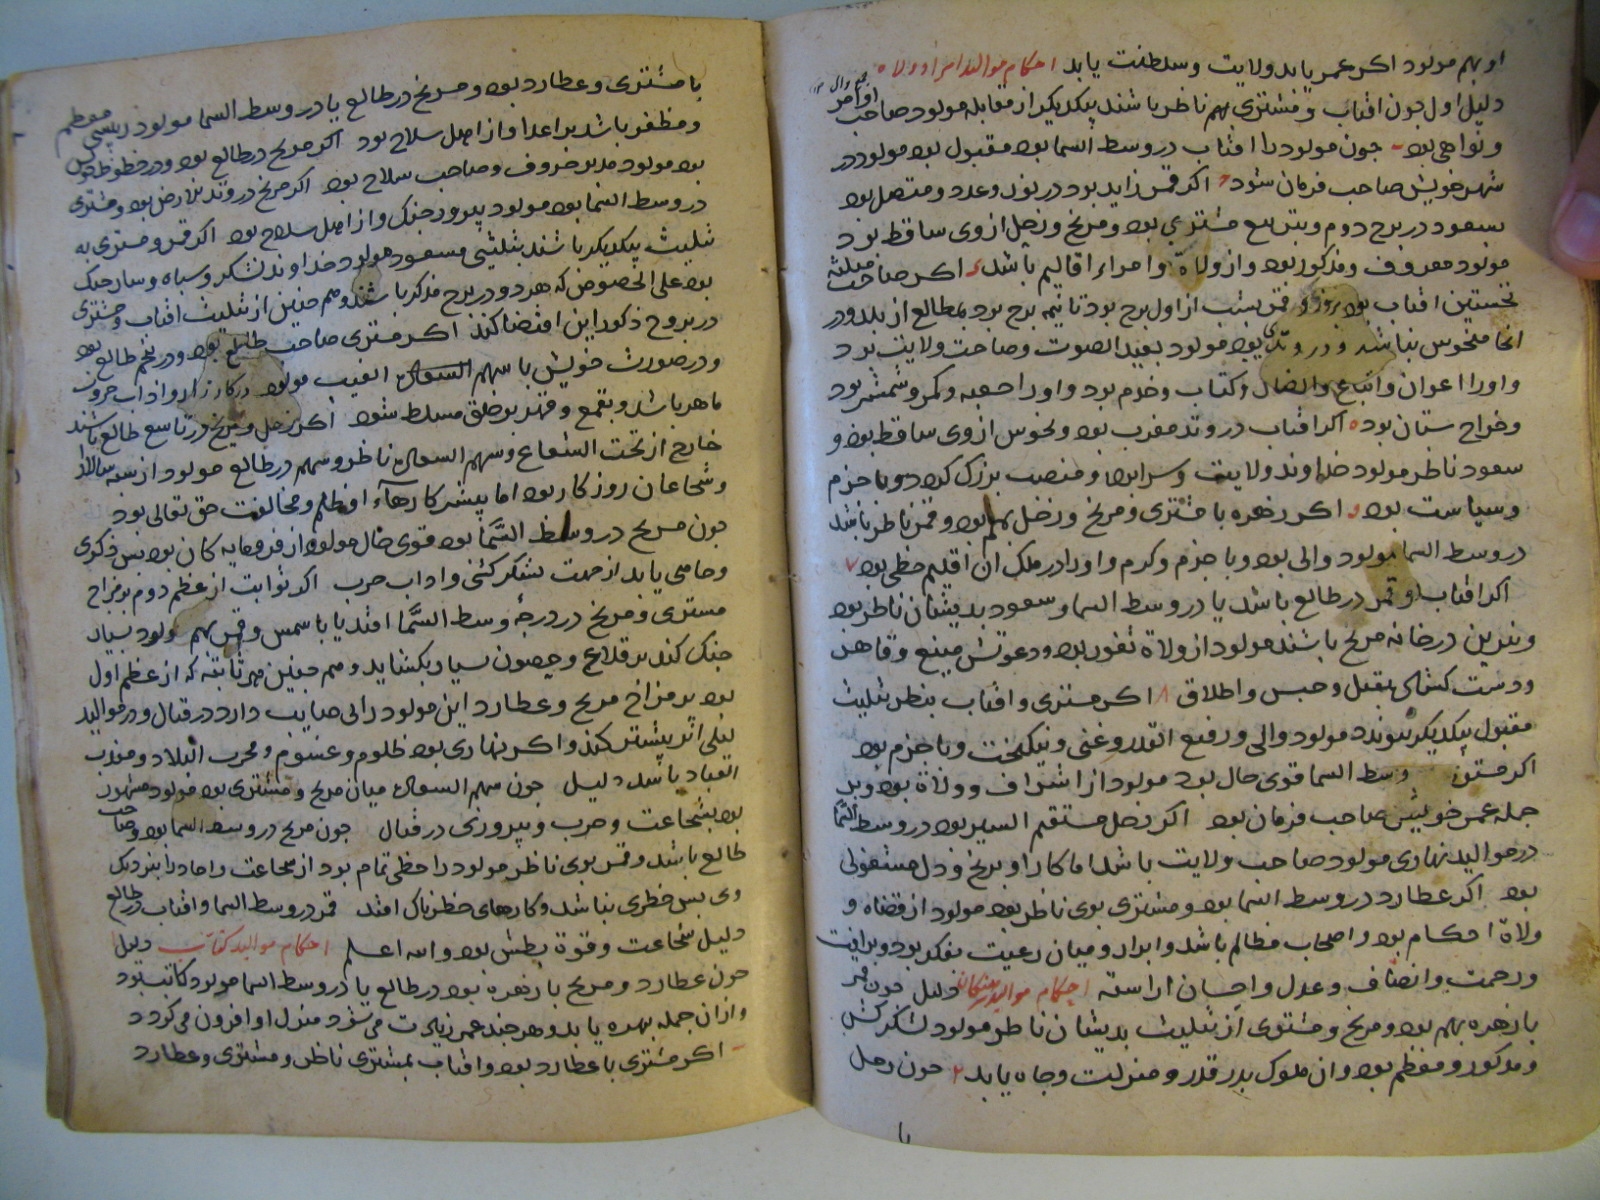 او بهم مولود اکر عمر یابد ولایت و سلطنت یابد احکام موالید امرا و ولاه
دلیل اول جون افتاب و مشتری بهم ناظر باشند بیکدیکر از مقابله مولود صاحب اوامر
و نواهی بود جون مولود را افتاب در وسط السما بود مقبول بود مولود در
شهر خویش صاحب فرمان شود اکر قمر زاید بود در نور و عدد و متصل بود
بسعود در برج دوم و بتربیع مشتری بود و مریخ و زحل از وی ساقط بود
مولود معروف و مذکور بود و از ولاة و امراء اقالیم باشد اکر صاحب مثلثه
نخستین افتاب بود بروز و قمر بشب از اول برج بود تا نیمه برج بود بمطالع از بلد و در
انجا منحوس نباشد و در وتدی بود مولود بعید الصوت و صاحب ولایت بود
و اورا اعوان و اتباع و کتاب و خدم بود و اورا جعبه و کمر و شمشیر بود
و خراج ستان بود ۵ اکر افتاب در وتد مقرب بود و نحوس از وی ساقط بود و
سعود ناظر مولود خداوند ولایت و سرابود و منصب بزرک کرد و با حزم
و سیاست بود اکر زهره با مشتری و مریخ و زحل بهم بود و قمر ناظر باشد
در وسط السما مولود والی بود و با حزم و کرم و اورا در ملک ان اقلیم حظی بود ۷
اکر افتاب و قمر در طالع باشد یا در وسط السما و سعود بدیشان ناظر بود
و نیرین در خانه مریخ باشند مولود از ولاة ثغور بود و دعوتش منیع و قاهر
و دست کشای بقتل و حبس و اطلاق ۸ اکر مشتری و افتاب بنظر تثلیث
مقبول بیکدیکر شوند مولود والی و رفیع القدر و غنی و نیکبخت و با حزم بود
اکر مشتری وسط السما قوی حال بود مولود از اشراف و ولاة بود و بر
جمله عمر خویش صاحب فرمان بود اکر زحل مستقیم السیر بود در وسط السما
در موالید نهاری مولود صاحب ولایت باشد اما کار او برنج و دل مشغولی
بود اکر عطارد در وسط السما بود و مشتری بوی ناظر بود مولود از قضاه و
ولاة احکام بود و اصحاب مظالم باشد و ابرار و میان رعیت بفکر بود و برافت
و رحمت و انصاف و عدل و احسان اراسته احکام موالید دلیل جون قمر
با زهره بهم بود و مریخ و مشتری از تثلیث بدیشان ناظر مولود لشکرکش
و مذکور و معظم بود و از ملوک بدر قدر و منزلت و جاه یابد ۲ جون زحل
با مشتری و عطارد بود و مریخ در طالع یا در وسط السما مولود رییسی معظم
و مظفر باشد بر اعدا و از اهل سلاح بود اکر مریخ در طالع بود و در حظوظ خویش
بود مولود مدبر حروف و صاحب سلاح بود اکر مریخ در وتد الارض بود و مشتری
در وسط السما بود مولود پیروز جنک و از اهل سلاح بود اکر قمر و مشتری به
تثلیث بیکدیکر باشند بتثلیثی مسعود مولود خداوند لشکر و سپاه و ساز جنک
بود علی الخصوص که هر دو در برج مذکر باشند و هم جنین از تثلیث افتاب و مشتری
در بروج ذکور این اقتضا کند اکر مشتری صاحب طالع بود و در نجم طالع بود
و در صورت خویش با سهم الغیب مولود در کارزار و اداب حروب
ماهر باشد و بقمع و قهر بر خلق مسلط شود اکر زحل و مریخ در تاسع طالع باشند
خارج از تحت الشعاع و سهم السعاده ناظر و سهم در طالع مولود از سپه سالاران
و شجاعان روزکار بود اما بیشتر کارهاء او ظلم و مخالفت حق تعالی بود
جون مریخ در وسط السما بود قوی حال مولود از فرومایه کان بود بس ذکری
و جاهی یابد از جهت لشکر کشی و اداب حرب اکر ثوابت از عظم دوم بر مزاج
مشتری و مریخ در درجه وسط السما افتد یا با شمس و قمر بهم مولود بسیار
جنک کند بر قلاع و حصون بسیار بکشاید و هم جنین هر ثابته که از عظم اول
بود بر مزاج مریخ و عطارد این مولود رای صایب دارد در قتال و در موالید
لیلی اثر بیشتر کند و اکر نهاری بود ظلوم و غشوم و مخرب البلاد و معذب
العباد باشد دلیل جون سهم السعاده میان مریخ و مشتری بود مولود مشهور
بود بشجاعت و حرب و پیروزی در قتال جون مریخ در وسط السما بود و صاحب
طالع باشد و قمر بوی ناظر مولود را حظی تمام بود از شجاعت و اما در نزدیک
وی بس خطری نباشد و کارهای خطرناک افتد قمر در وسط السما و افتاب در طالع
دلیل شجاعت و قوة بطش بود و الله اعلم احکام موالید کتاب دلیل
جون عطارد و مریخ با زهره بود در طالع یا در وسط السما مولود کاتب بود
و از ان جمله بهره یابد و هر جند عمر زیادت می شود منزل او افزون می کردد
اکر مشتری با عطارد بود و افتاب بمشتری ناظر و مشتری و عطارد
یا